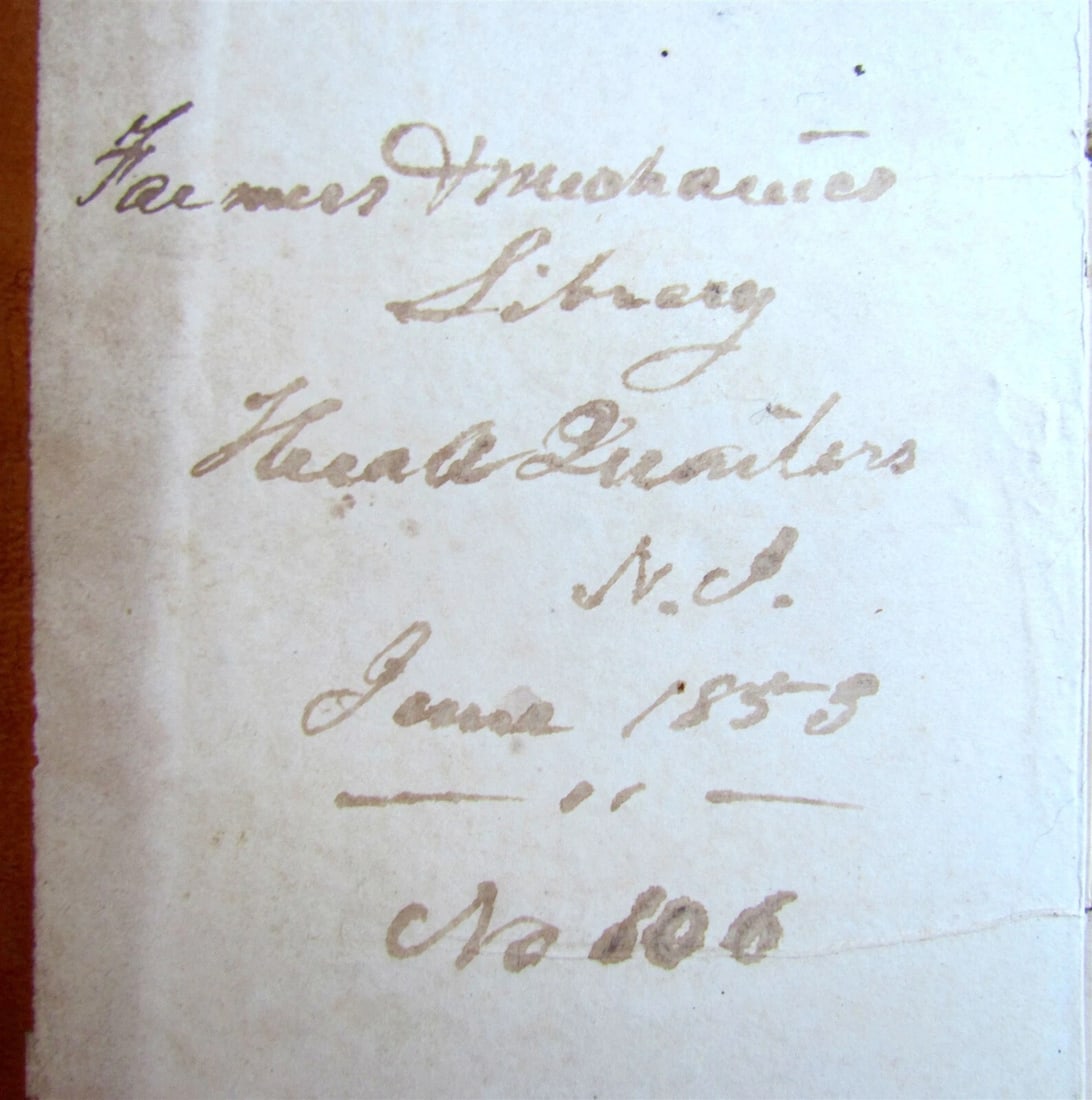 Farmers & mechanics
Library
Head Quarters
N. J.
June 1853
No 806